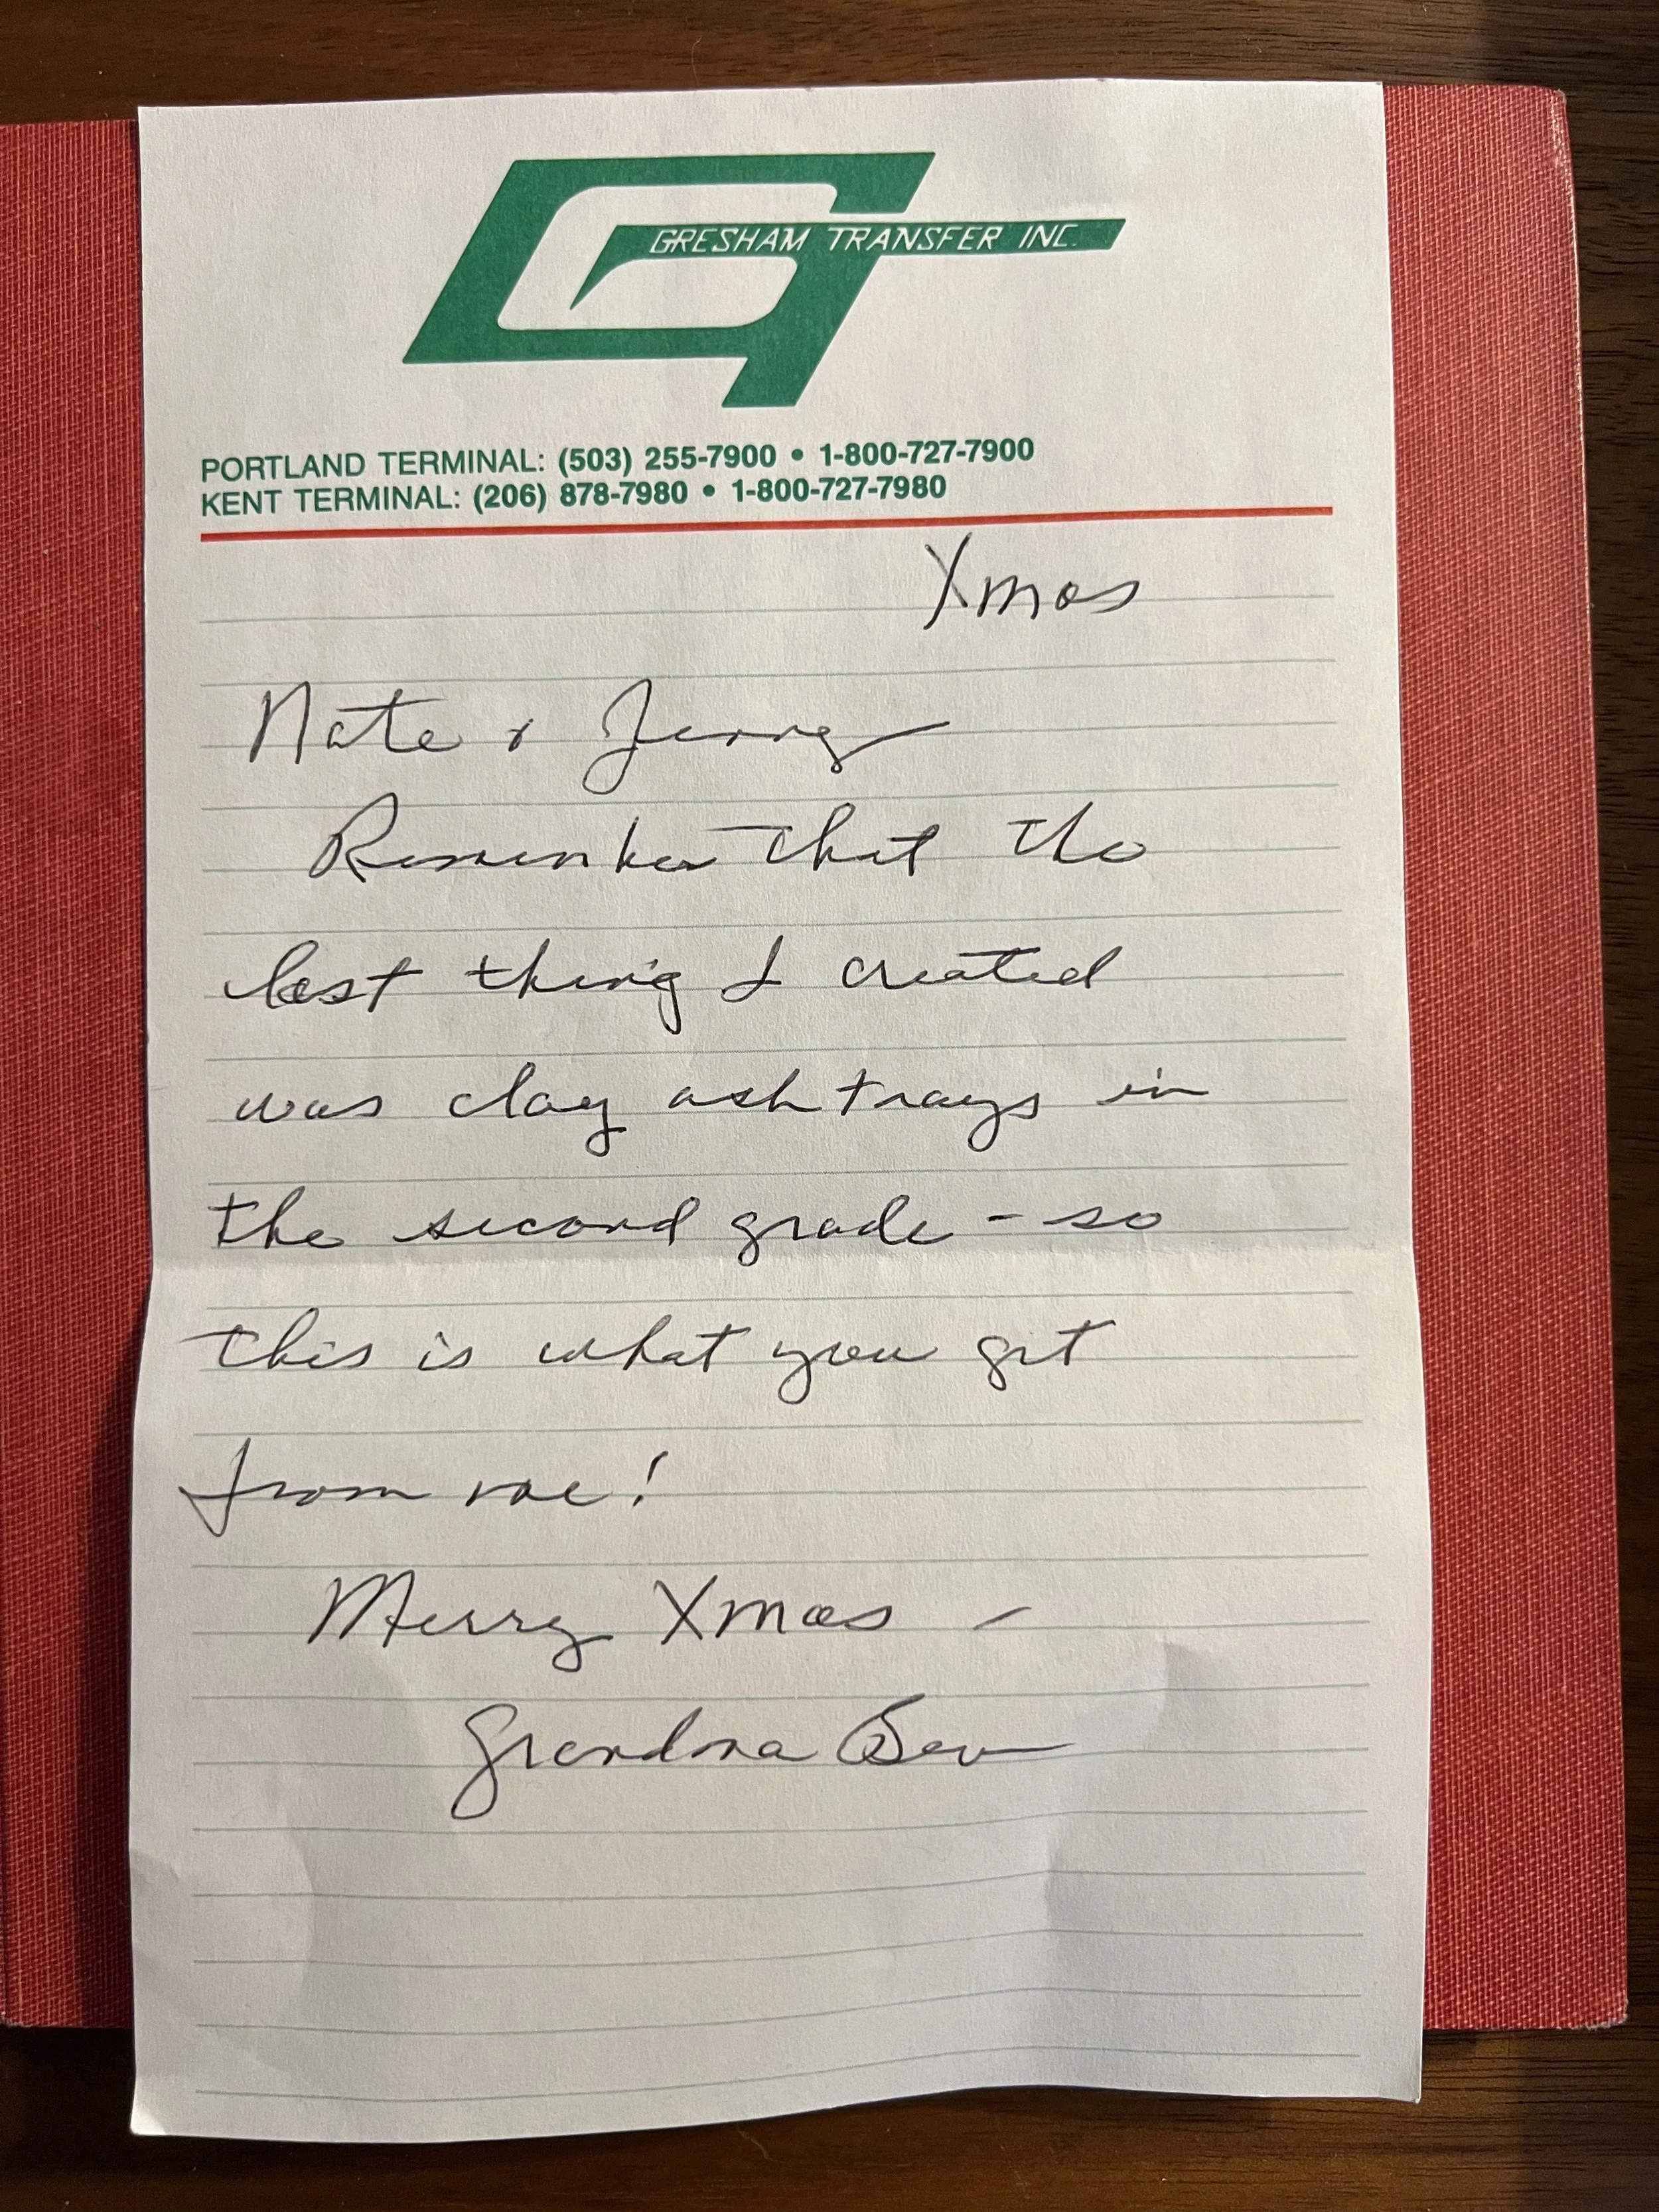 GRESHAM TRANSFER INC.
PORTLAND TERMINAL: (503) 255-7900 • 1-800-727-7900
KENT TERMINAL: (206) 878-7980 • 1-800-727-7980
Xmas
Nate & Jenny
Remember that the
last thing I created
was clay ash trays in
the second grade - so
this is what you get
from me!
Merry Xmas -
Grandma Bev